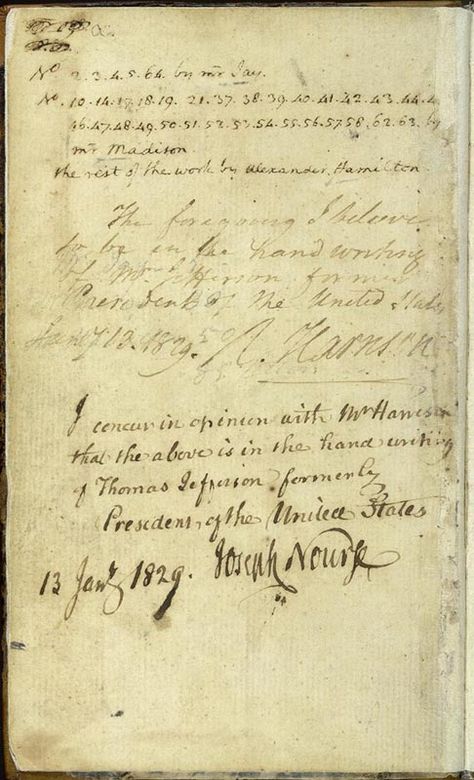 No. 2. 3. 4. 5. 64. by mr Jay.
No. 10. 14. 17. 18. 19. 21. 37. 38. 39. 40. 41. 42. 43. 44. 4
46. 47. 48. 49. 50. 51. 52. 53. 54. 55. 56. 57. 58. 62. 63. by
mr Madison.
the rest of the work by Alexander Hamilton.
The foregoing I believe
to be in the hand writing
of Mr. Jefferson former
President of the United States
Jany 13. 1829. R. Harrison
I concur in opinion with Mr Harrison
that the above is in the hand writing
of Thomas Jefferson formerly
President of the United States
13 Jany 1829. Joseph Nourse